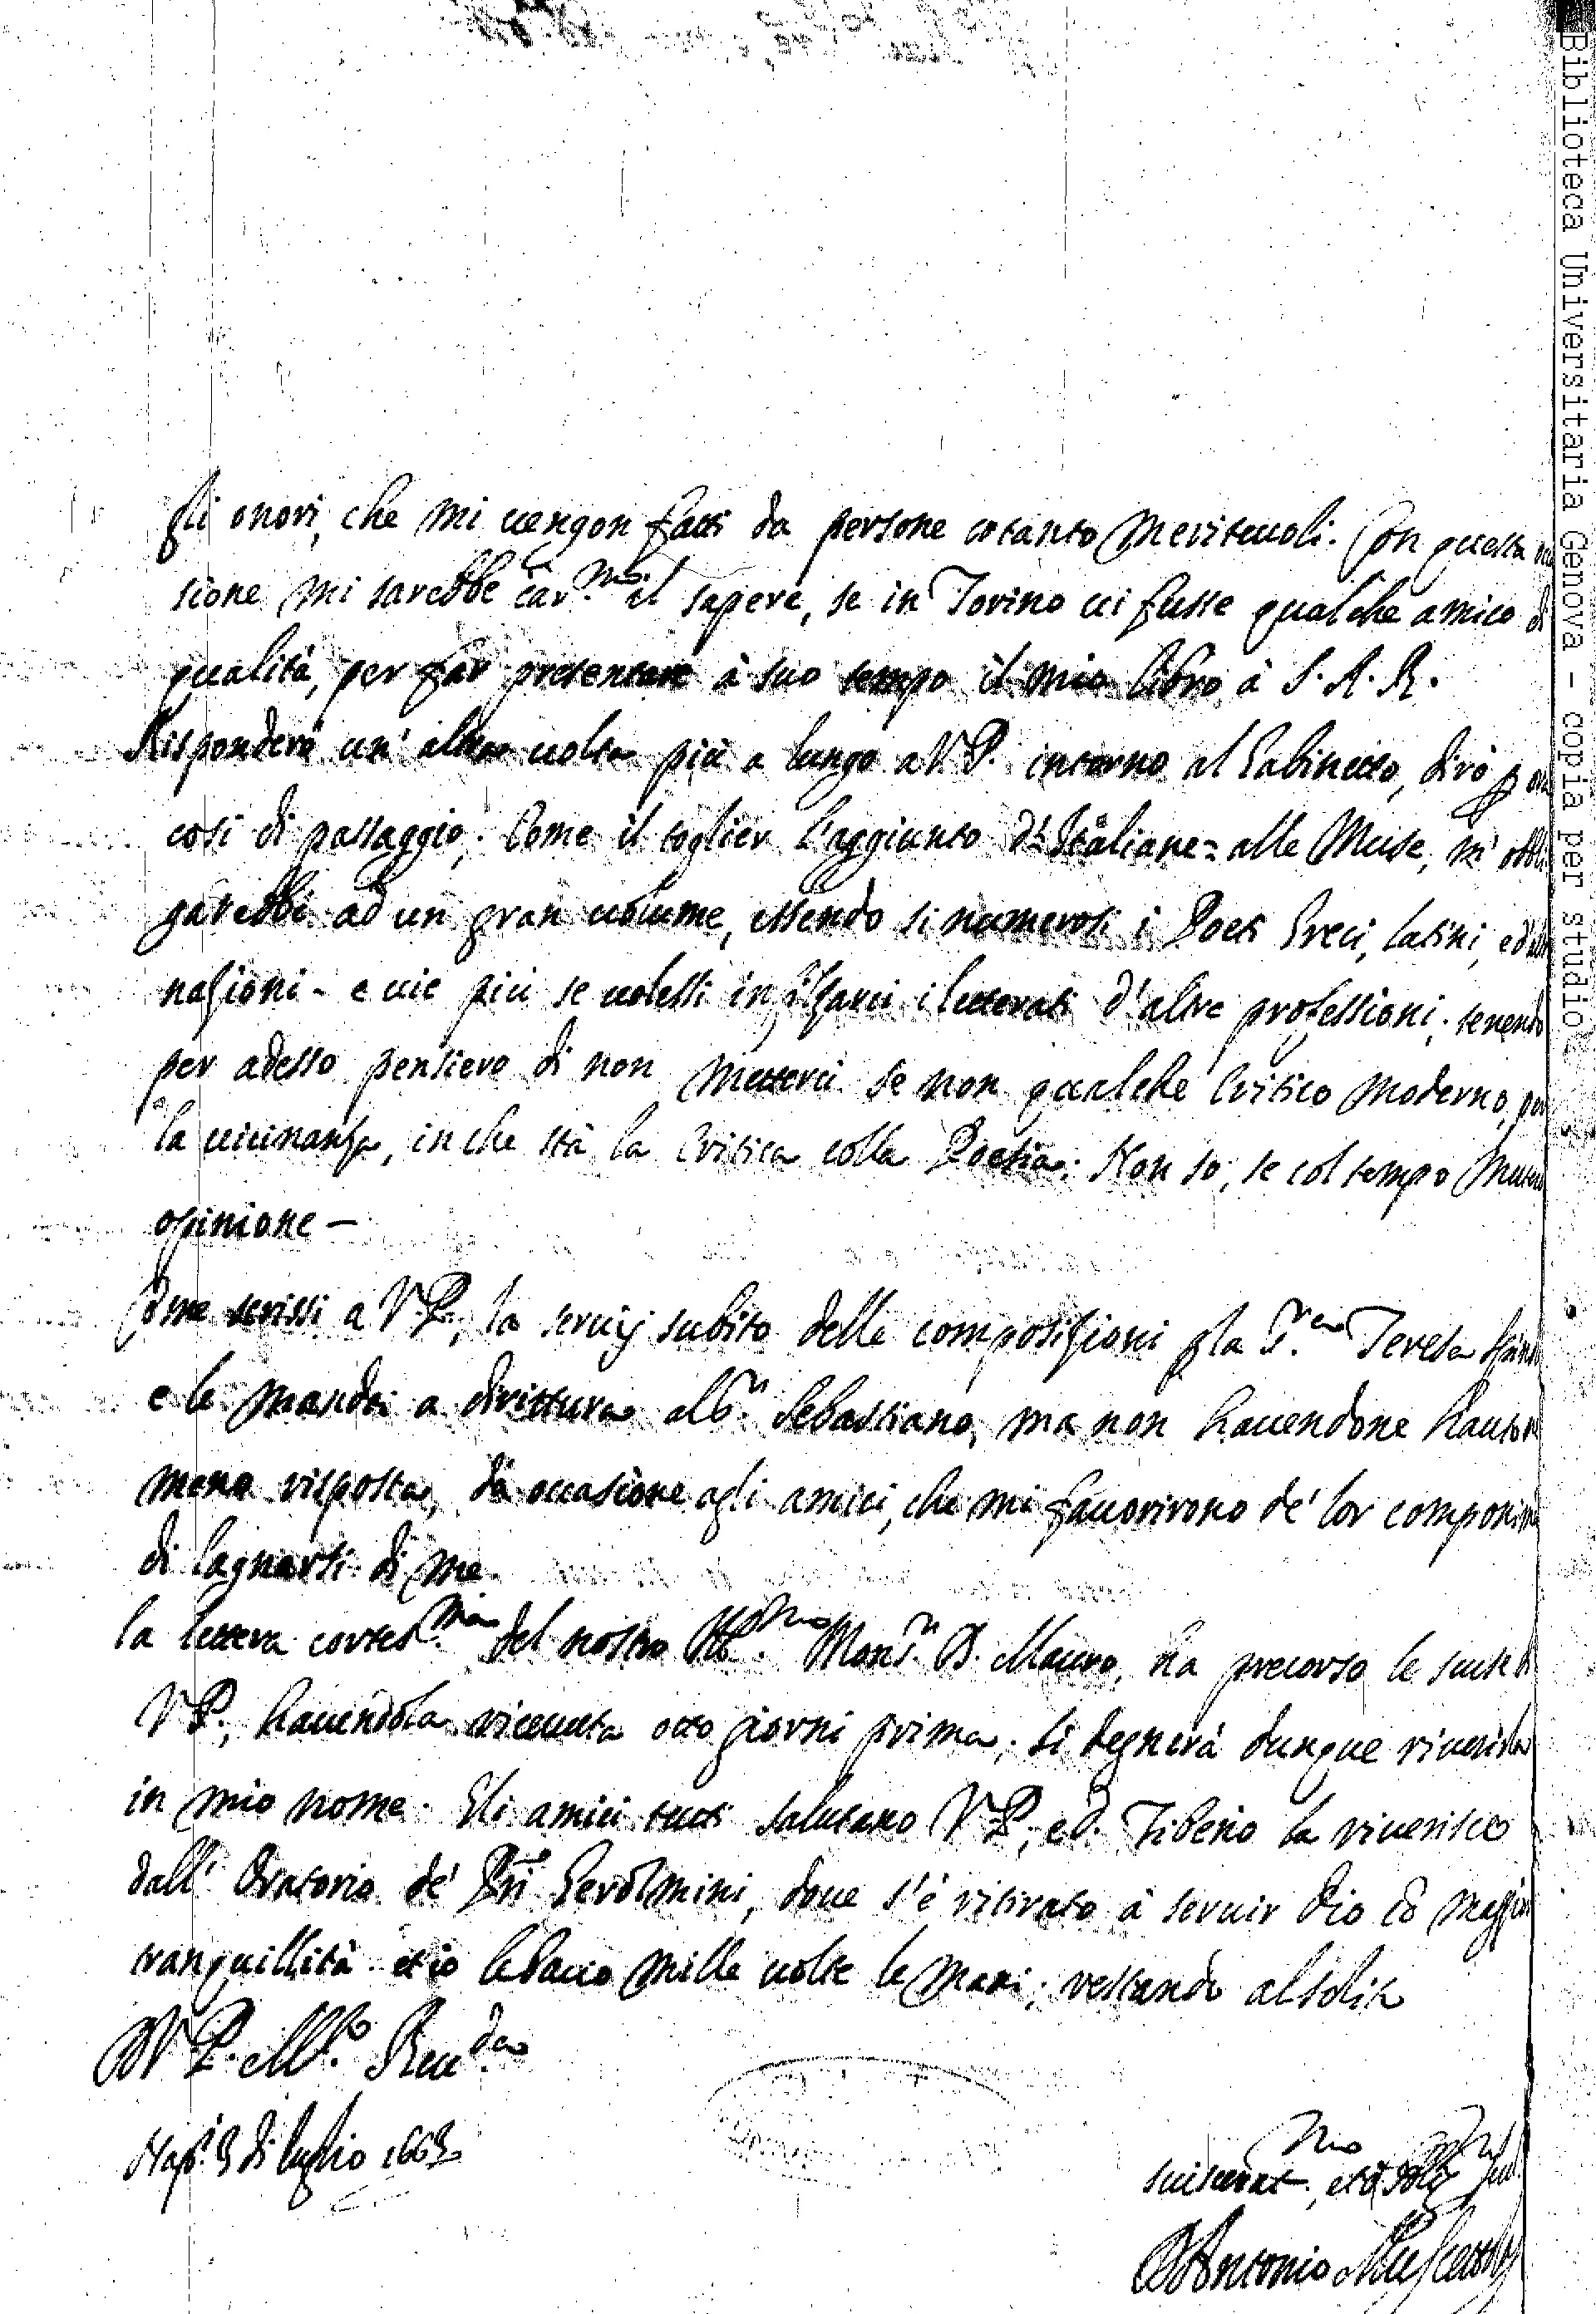 gli onori, che mi vengon fatti da persone cotanto meritevoli. Con questa
sione mi sarebbe car.mo il sapere, se in Torino vi fusse qualche amico di
qualità, per far presentare à suo tempo il mio libro à S. A. R.
Risponderò un' altra volta più a lungo a V. P. intorno al Gabinetto, dirò p ora
così di passaggio; Come il toglier l'aggiunto d'Italiane = alle Muse, m' obbli
garebbe ad un gran volume, essendo si numerosi i Poeti Greci, latini, ed
nazioni - e vie più se volessi infilzarci i letterati d'altre professioni; tenendo
per adesso pensiero di non metterci se non qualche Critico moderno, per
la vicinanza, in che stà la Critica colla Poesia; Non so, se col tempo
opinione -
Come scrissi a V. P., la servij subito delle composizioni p la S.ra Teresa
e le mandai a dirittura al S.r Sebastiano, ma non havendone
meno risposta, dà occasione agli amici, che mi favorirono de' lor
di lagnarsi di me.
la lettera cortes.ma del nostro Mons.r D. Mauro, ha precorso le
V. P., havendola ricevuta otto giorni prima; si degnerà dunque riverirla
in mio nome. Gli amici tutti salutano V. P., e D. Tiberio la riverisce
dall' Oratorio de' PPri Gerolmini, dove s'è ritirato à servir Dio cō maggior
tranquillità et io le bacio mille volte le mani; restando al solito
D V. P. M.to Rev.da
Nap. 3 di luglio 1663
sviscerat.mo, et oblig.mo
D Antonio Muscettola
Biblioteca Universitaria Genova - copia per studio